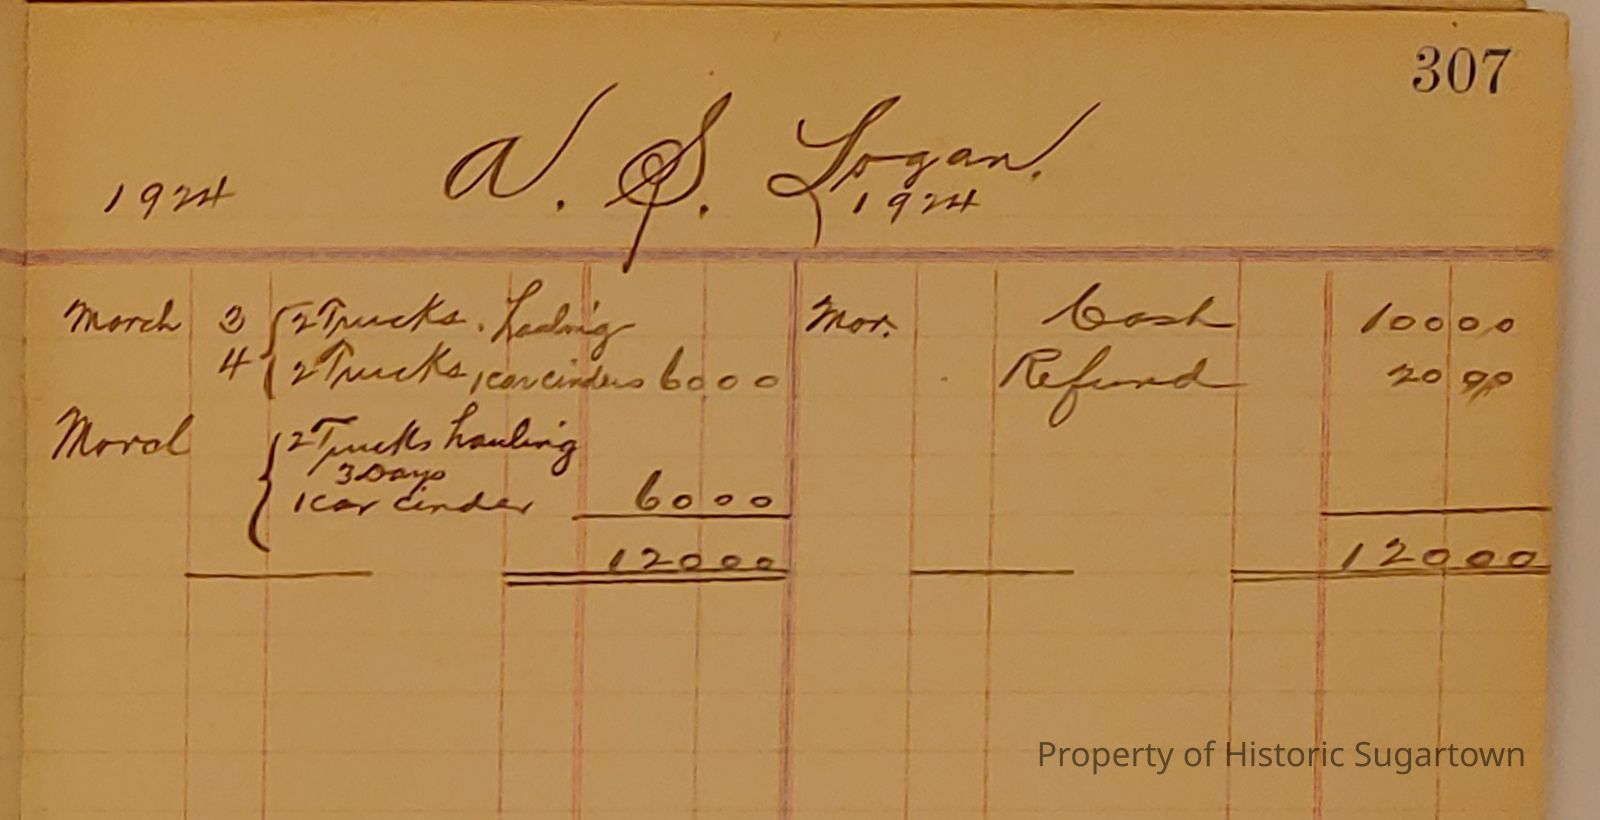 307
A. S. Logan.
1924
1924
March 3 2 Trucks. hauling
4 2 Trucks, 1 car cinders 60 00
March 2 Trucks hauling
3 Days
1 car cinder 60 00
120 00
Mar. Cash 100 00
Refund 20 00
120 00
Property of Historic Sugartown